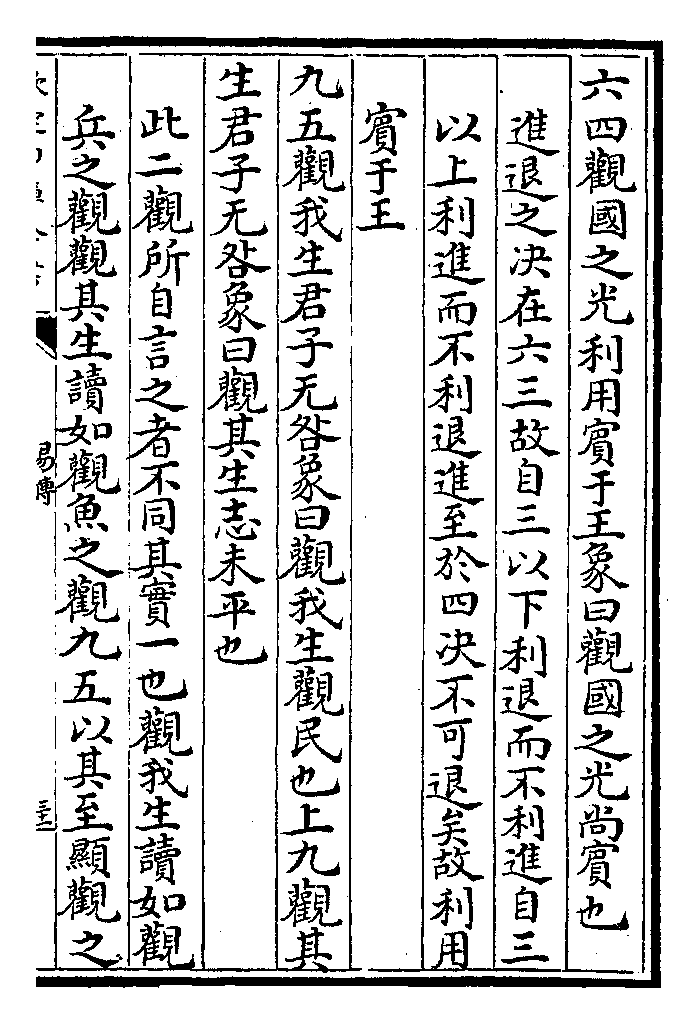 六四觀國之光利用賓于王象曰觀國之光尚賓也
進退之决在六三故自三以下利退而不利進自三
以上利進而不利退進至於四决不可退矣故利用
賓于王
九五觀我生君子无咎象曰觀我生觀民也上九觀其
生君子无咎象曰觀其生志未平也
此二觀所自言之者不同其實一也觀我生讀如觀
兵之觀觀其生讀如觀魚之觀九五以其至顯觀之
易傳